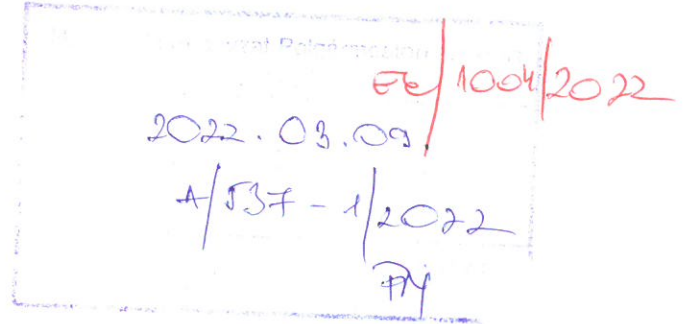 EE/1004/2022
2022.03.09.
A/537-1/2022